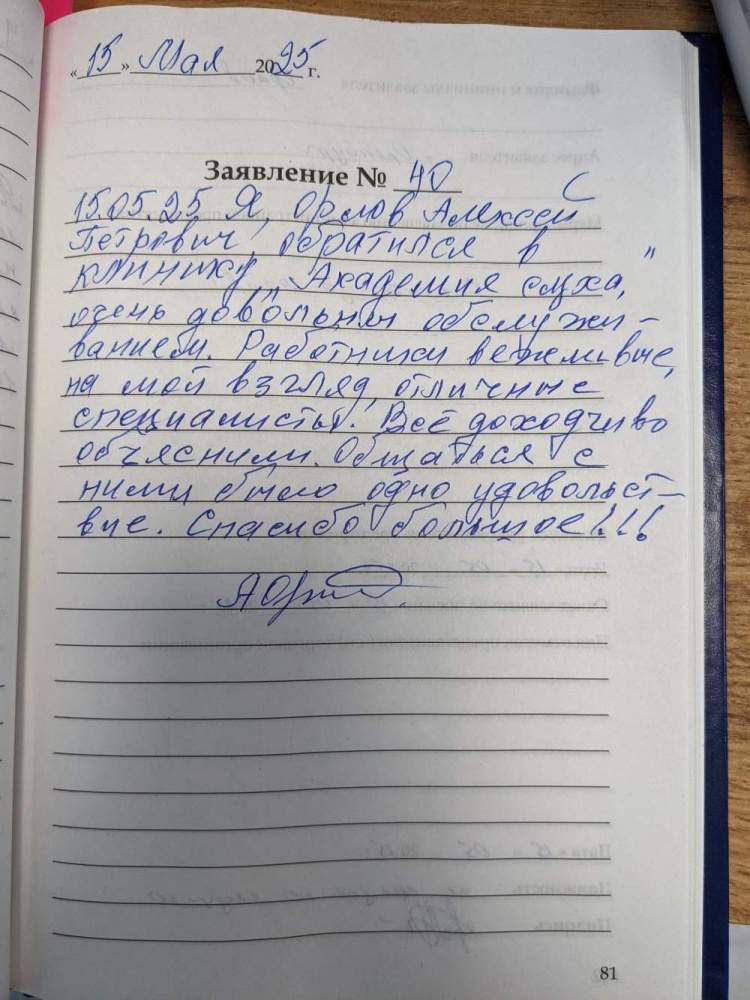 « 15 » Мая 2025 г.
Заявление № 40
15.05.25 Я, Орлов Алексей
Петрович, обратился в
клинику „Академия слуха,"
очень довольны обслужи-
ванием. Работники вежливые,
на мой взгляд, отличные
специалисты! Всё доходчиво
объяснили. Общаться с
ними было одно удовольст-
вие. Спасибо большое!!!
81